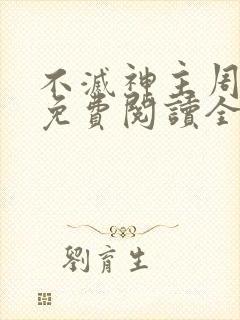 不滅神主周
免費閱讀全
劉育生